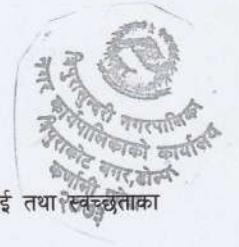 त्रिपुरासुन्दरी नगरपालिका
नगर कार्यपालिकाको कार्यालय
त्रिपुराकोट नगर, डोल्पा
कर्णाली प्रदेश
ई तथा स्वच्छताका